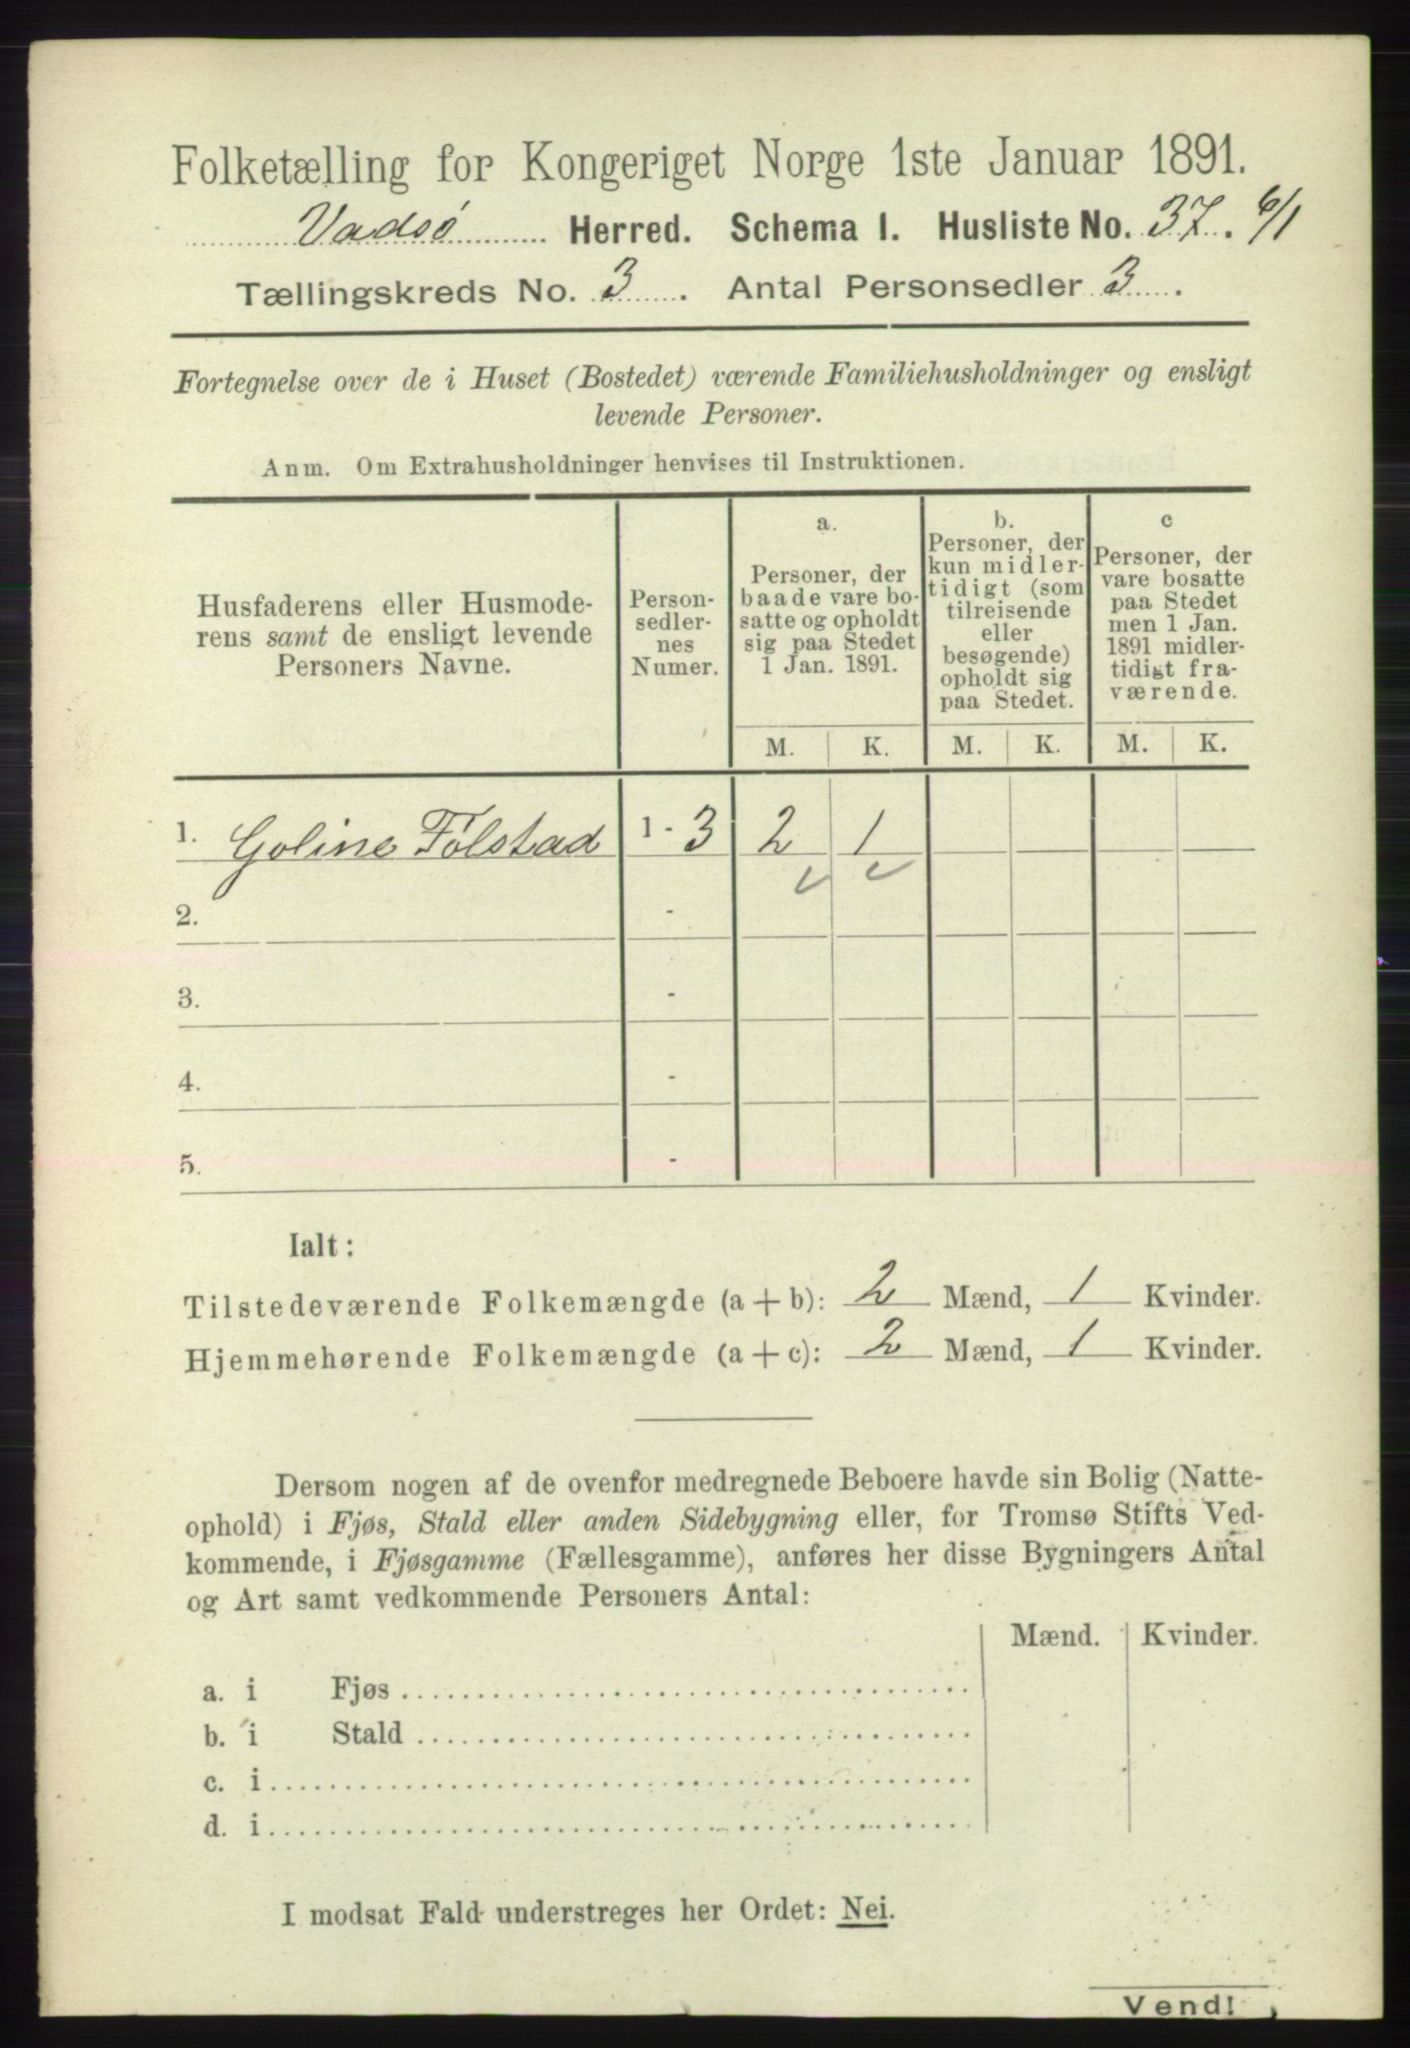 Folketælling for Kongeriget Norge 1ste Januar 1891.
Vadsö Herred. Schema I. Husliste No. 37. 6/1
Tællingskreds No. 3. Antal Personsedler 3.
Fortegnelse over de i Huset (Bostedet) værende Familiehusholdninger og ensligt
levende Personer.
Anm. Om Extrahusholdninger henvises til Instruktionen.
Husfaderens eller Husmode-
rens samt de ensligt levende
Personers Navne.
Person-
sedler-
nes
Numer.
a.
Personer, der
baade vare bo-
satte og opholdt
sig paa Stedet
1 Jan. 1891.
b.
Personer, der
kun midler-
tidigt (som
tilreisende
eller
besøgende)
opholdt sig
paa Stedet.
c
Personer, der
vare bosatte
paa Stedet
men 1 Jan.
1891 midler-
tidigt fra-
værende.
M. K. M. K. M. K.
1. Goline Tolstad 1 - 3 2 1
2. -
3. -
4. -
5. -
Ialt:
Tilstedeværende Folkemængde (a + b): 2 Mænd, 1 Kvinder.
Hjemmehørende Folkemængde (a + c): 2 Mænd, 1 Kvinder.
Dersom nogen af de ovenfor medregnede Beboere havde sin Bolig (Natte-
ophold) i Fjøs, Stald eller anden Sidebygning eller, for Tromsø Stifts Ved-
kommende, i Fjøsgamme (Fællesgamme), anføres her disse Bygningers Antal
og Art samt vedkommende Personers Antal:
Mænd. Kvinder.
a. i Fjøs
b. i Stald
c. i
d. i
I modsat Fald understreges her Ordet: Nei.
Vend!